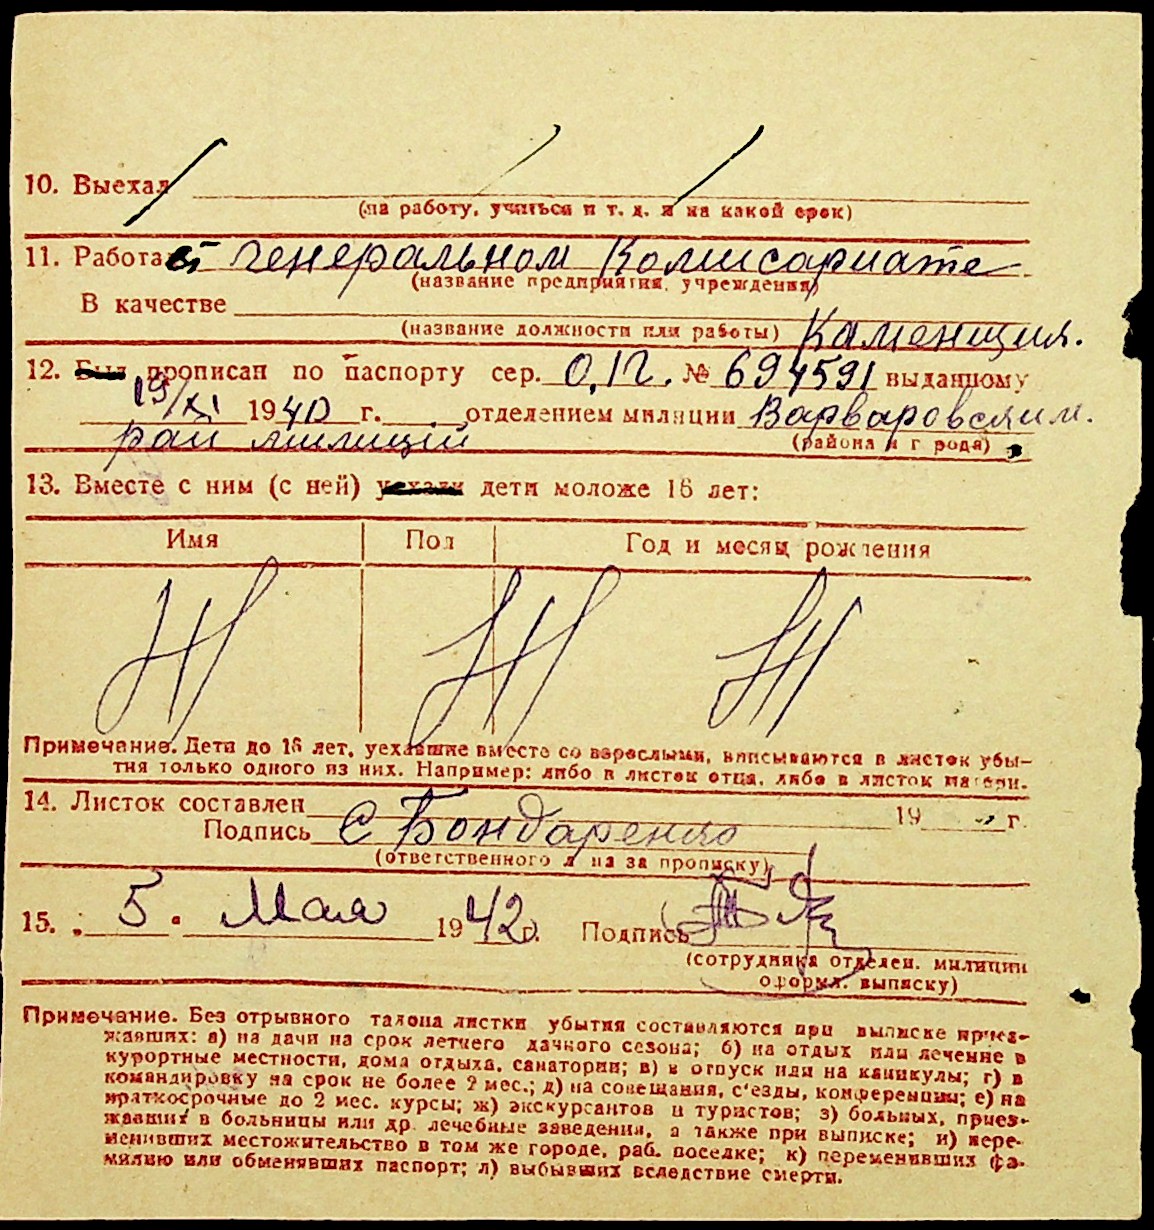 10. Выехал
(на работу, учиться и т. д. и на какой срок)
11. Работает Генеральном Комисариате
(название предприятия, учреждения)
В качестве
(название должности или работы) Каменщик.
12. Был прописан по паспорту сер. 0,1Г. № 694591 выданному
19/XI 1940 г. отделением милиции Варваровским.
рай милицій (района и города)
13. Вместе с ним (с ней) уехали дети моложе 16 лет:
Имя Пол Год и месяц рождения
Примечание. Дети до 16 лет, уехавшие вместе со взрослыми, вписываются в листок убы-
тия только одного из них. Например: либо в листок отца, либо в листок матери.
14. Листок составлен 19 г.
Подпись С Бондаренко
(ответственного л на за прописку)
15. „ 5 " Мая 1942 г. Подпись
(сотрудника отделен. милиции
оформ. выписку)
Примечание. Без отрывного талона листки убытия составляются при выписке приез-
жавших: а) на дачи на срок летнего дачного сезона; б) на отдых или лечение в
курортные местности, дома отдыха, санатории; в) в отпуск или на каникулы; г) в
командировку на срок не более 2 мес.; д) на совещания, с'езды, конференции; е) на
краткосрочные до 2 мес. курсы; ж) экскурсантов и туристов; з) больных, приез-
жавших в больницы или др. лечебные заведения, а также при выписке; и) пере-
менивших местожительство в том же городе, раб. поселке; к) переменивших фа-
милию или обменявших паспорт; л) выбывших вследствие смерти.